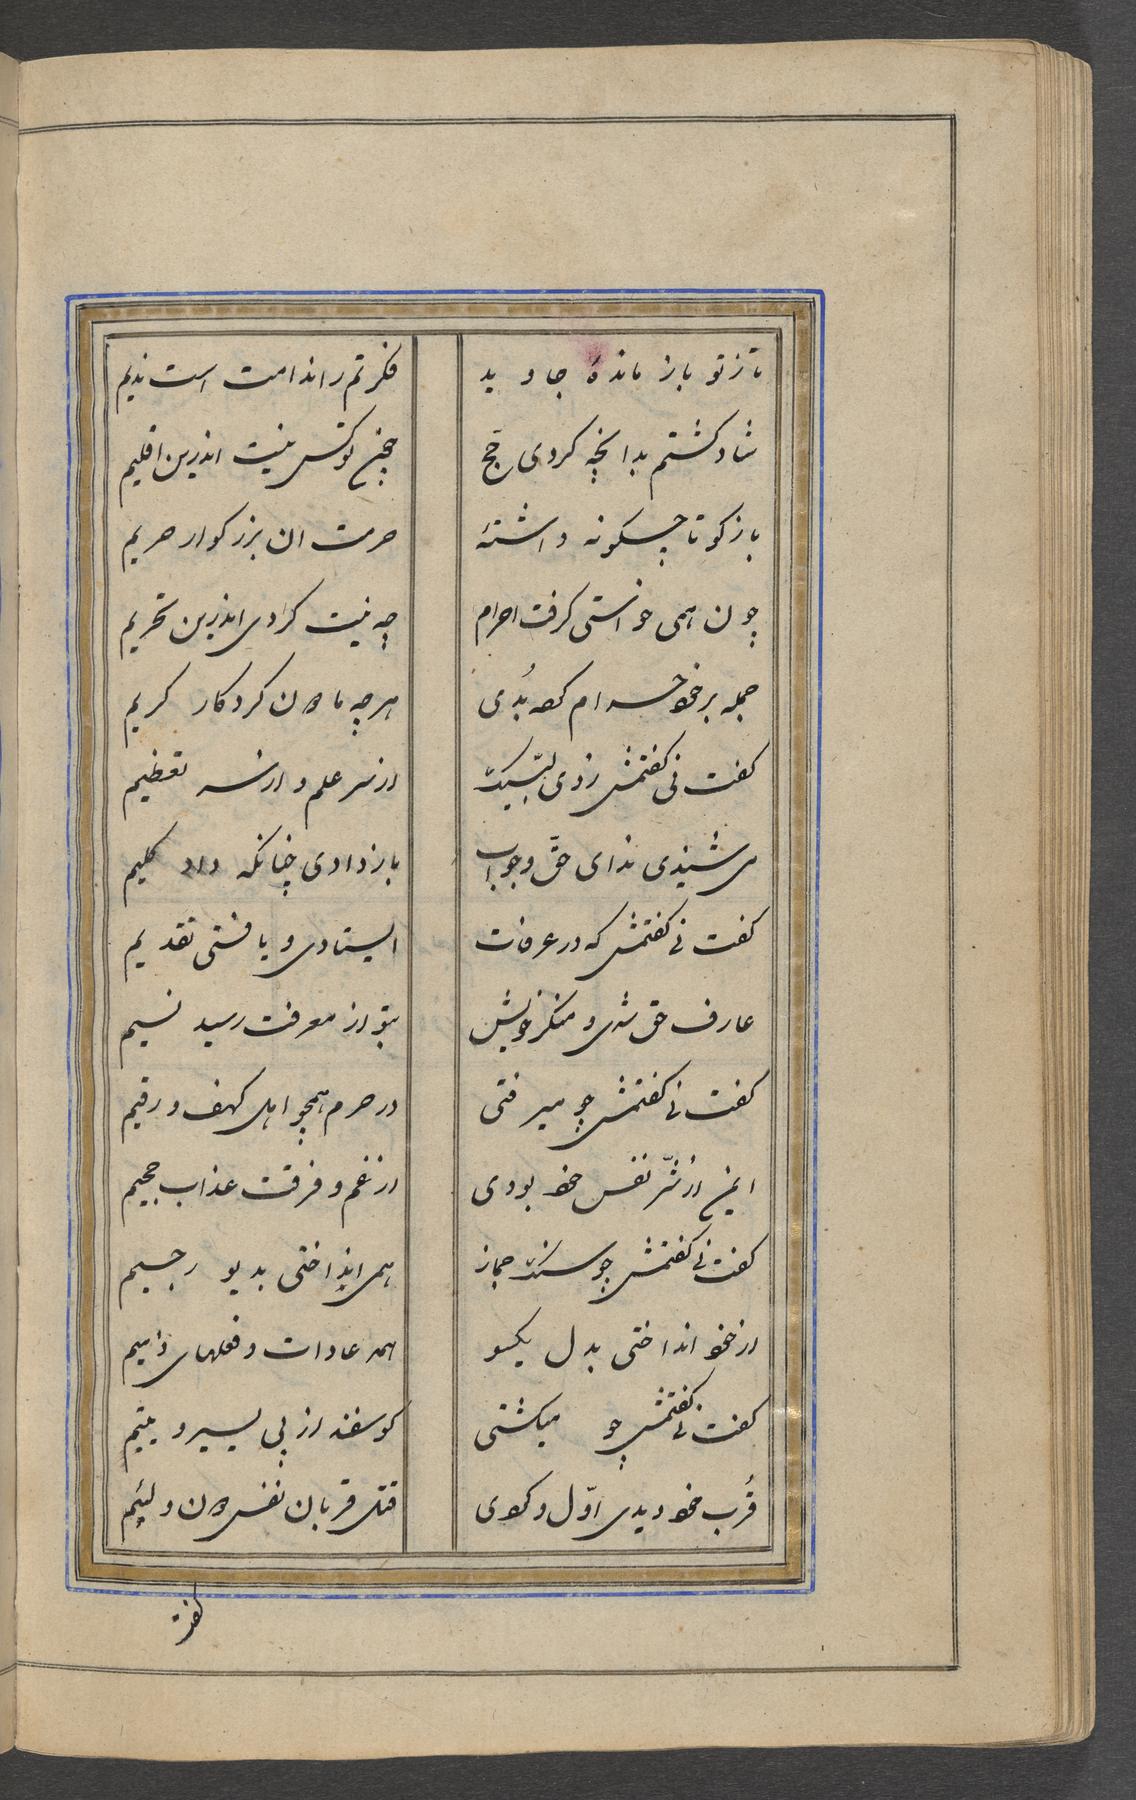 تا ز تو باز مانده‌ٔ جاوید
فکرتم را ندامت است ندیم
شاد گشتم بدانچه کردی حج
چون تو کس نیست اندرین اقلیم
باز گو تا چگونه داشتهٔ
حرمت آن بزرگوار حریم
چون همی خواستی گرفت احرام
چه نیت کردی اندرین تحریم
جمله بر خود حرام کرده بُدی
هر چه مادون کردکار کریم
گفت نی گفتمش زدی لبّیک
از سر علم و از سر تعظیم
می شنیدی ندای حقّ و جواب
باز دادی چنانکه داد کلیم
گفت نی گفتمش که در عرفات
ایستادی و یافتی تقدیم
عارف حق شدی و منکر خویش
بتو از معرفت رسید نسیم
گفت نی گفتمش چو میرفتی
در حرم همچو اهل کهف و رقیم
ایمن از شرّ نفس خود بودی
از غم و فرقت عذاب جحیم
گفت نی گفتمش چو سنگ جمار
همی انداختی بدیو رجیم
از خود انداختی بدل یکسو
همه عادات و فعلهای ذمیم
گفت نی گفتمش چو میکشتی
گوسفند از پی یسیر و یتیم
قُرب خود دیدی اوّل و کردی
قتل قربان نفس دون و لئیم
گفت